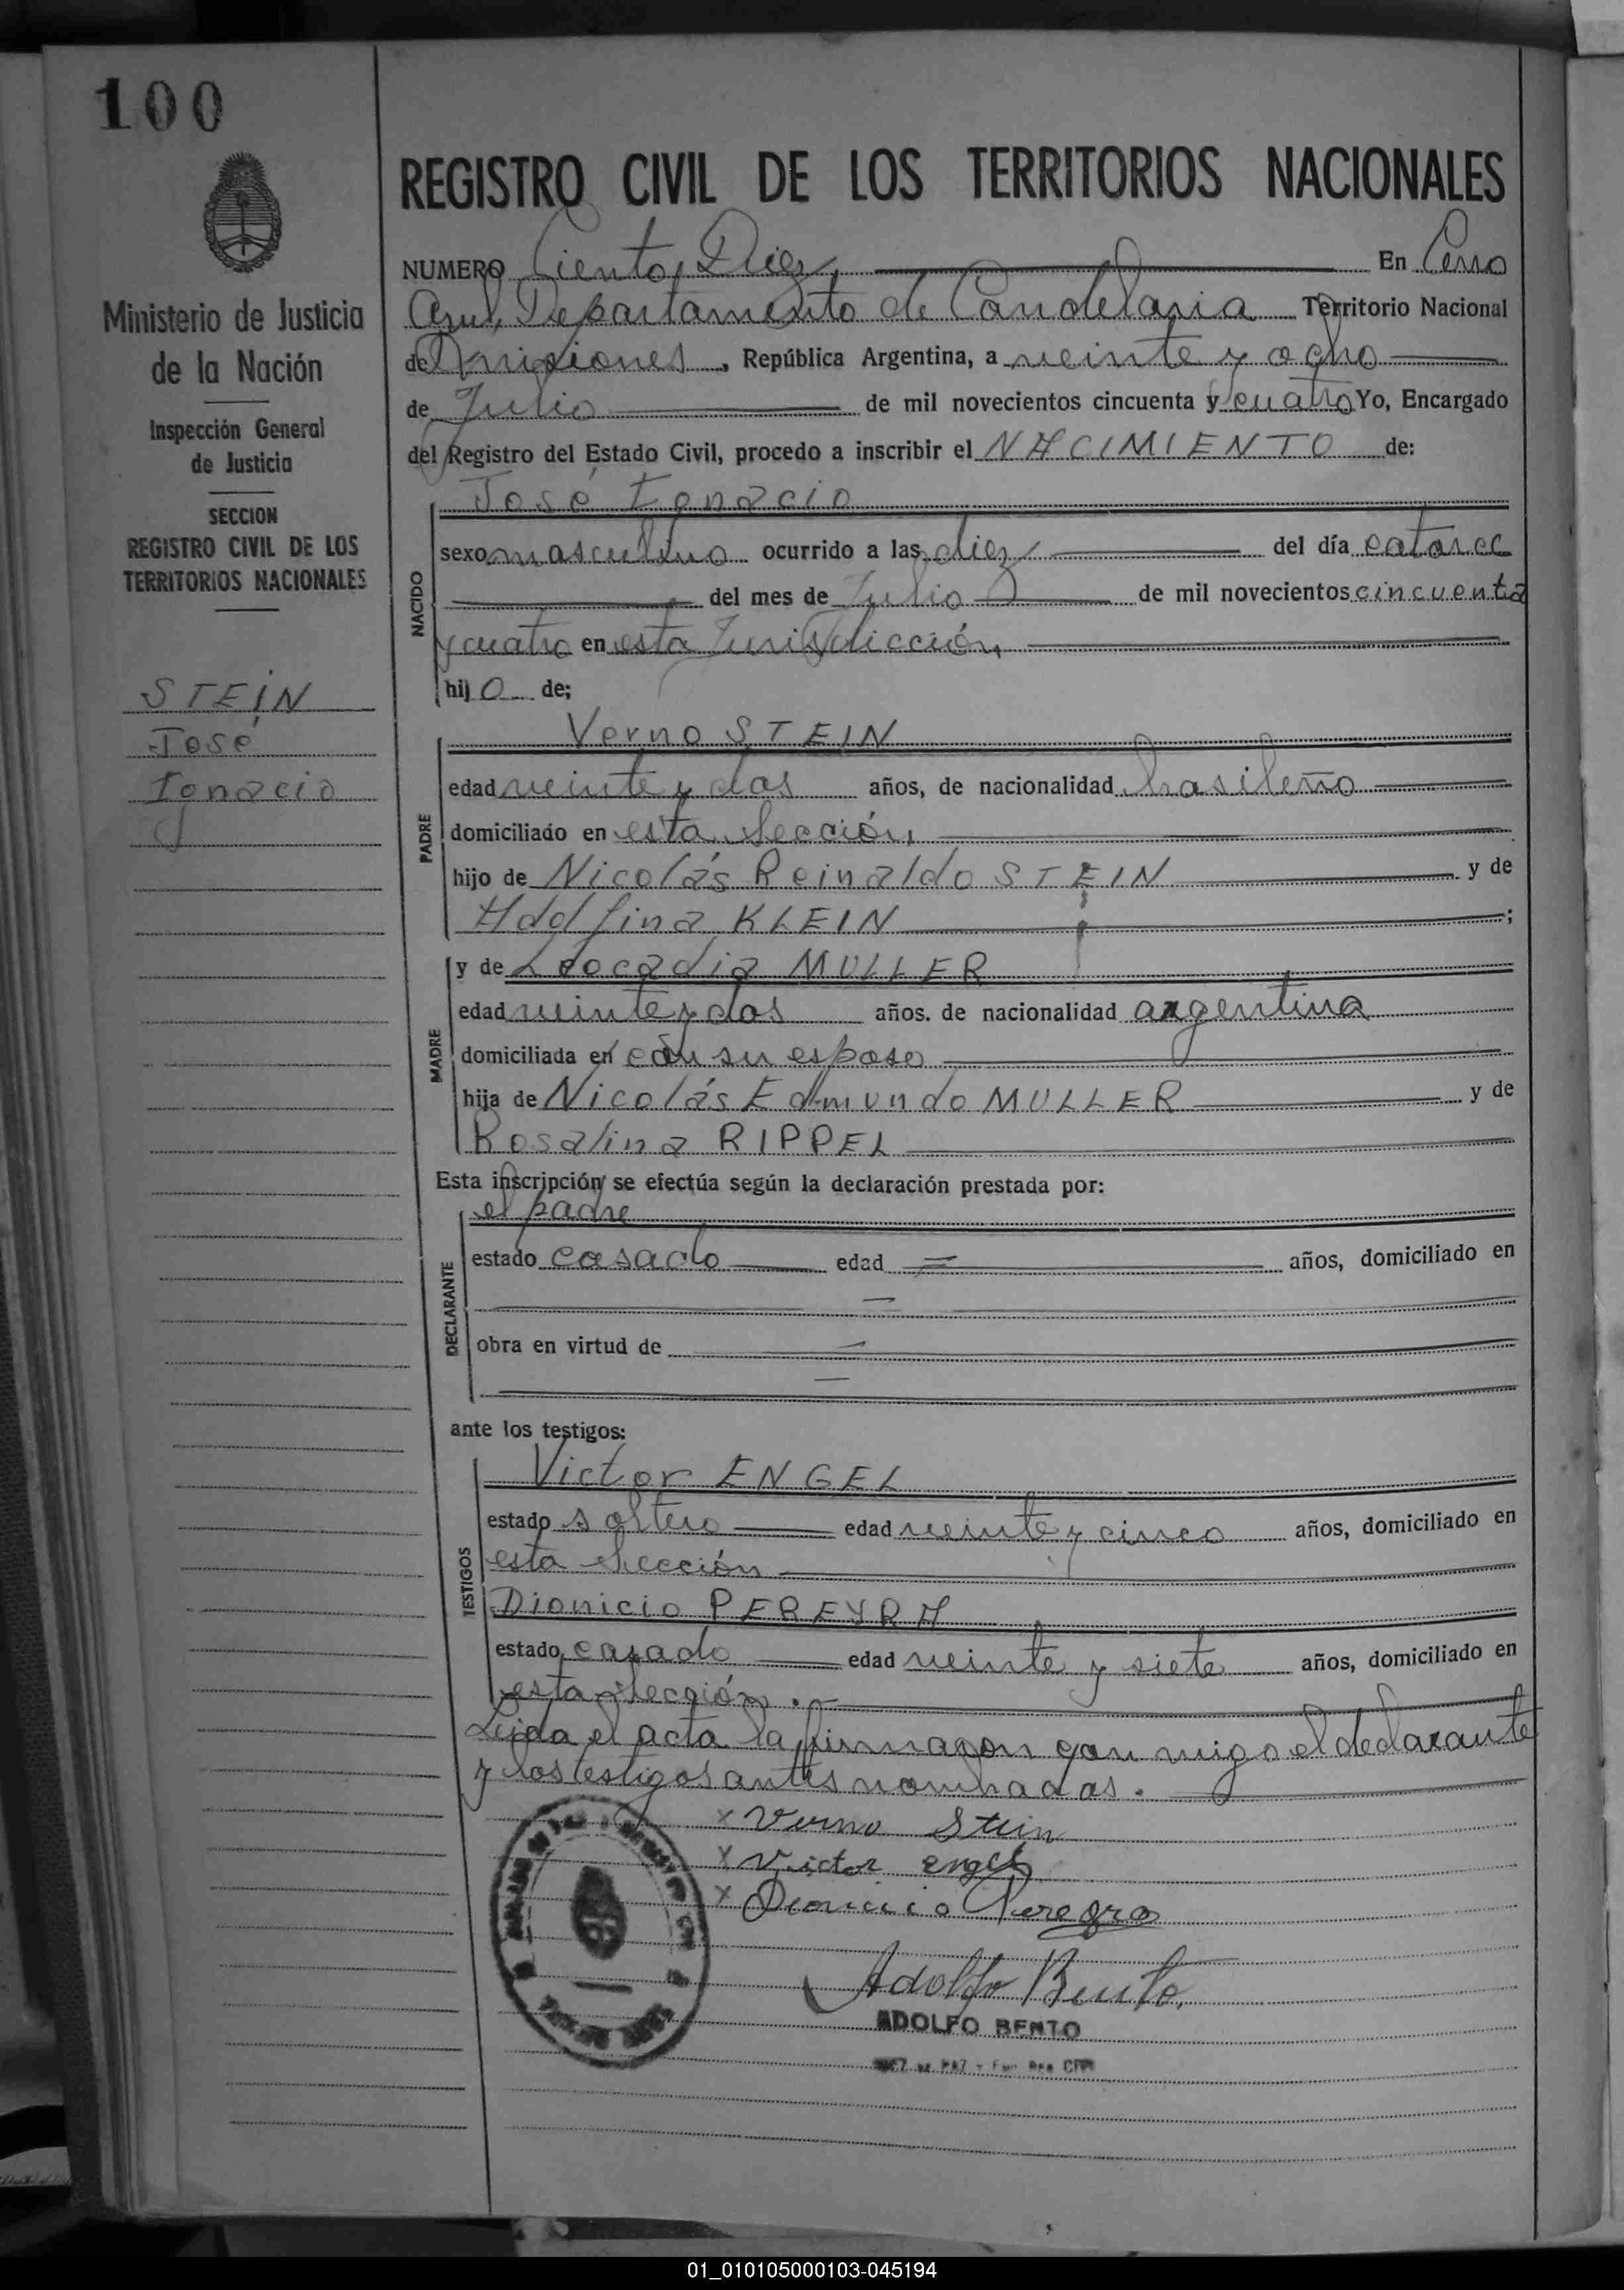 100
Ministerio de Justicia
de la Nación
Inspección General
de Justicia
SECCION
REGISTRO CIVIL DE LOS
TERRITORIOS NACIONALES
STEIN
José
Ignacio
REGISTRO CIVIL DE LOS TERRITORIOS NACIONALES
NUMERO Ciento Diez, En Cerro
Azul, Departamento de Candelaria Territorio Nacional
de Misiones, República Argentina, a veinte y ocho
de Julio de mil novecientos cincuenta y cuatro Yo, Encargado
del Registro del Estado Civil, procedo a inscribir el NACIMIENTO de:
José Ignacio
NACIDO
sexo masculino ocurrido a las diez del día catorce
del mes de Julio de mil novecientos cincuenta
y cuatro en esta Jurisdicción,
hijo de;
Verno STEIN
PADRE
edad veinte y dos años, de nacionalidad brasileño
domiciliado en esta Sección,
hijo de Nicolás Reinaldo STEIN y de
Adolfina KLEIN;
MADRE
y de Leocadia MULLER
edad veinte y dos años. de nacionalidad argentina
domiciliada en con su esposo
hija de Nicolás Edmundo MULLER y de
Rosalina RIPPEL
Esta inscripción se efectúa según la declaración prestada por:
el padre
DECLARANTE
estado casado edad = años, domiciliado en
obra en virtud de
ante los testigos:
Victor ENGEL
TESTIGOS
estado soltero edad veinte y cinco años, domiciliado en
esta Sección
Dionicio PEREYRA
estado casado edad veinte y siete años, domiciliado en
esta Sección.
Leida el acta la firmaron con migo el declarante
y los testigos antes nombrados.
x Verno Stein
x Victor Engel
x Dionicio Pereyra
Adolfo Bento.
ADOLFO BENTO
01_010105000103-045194